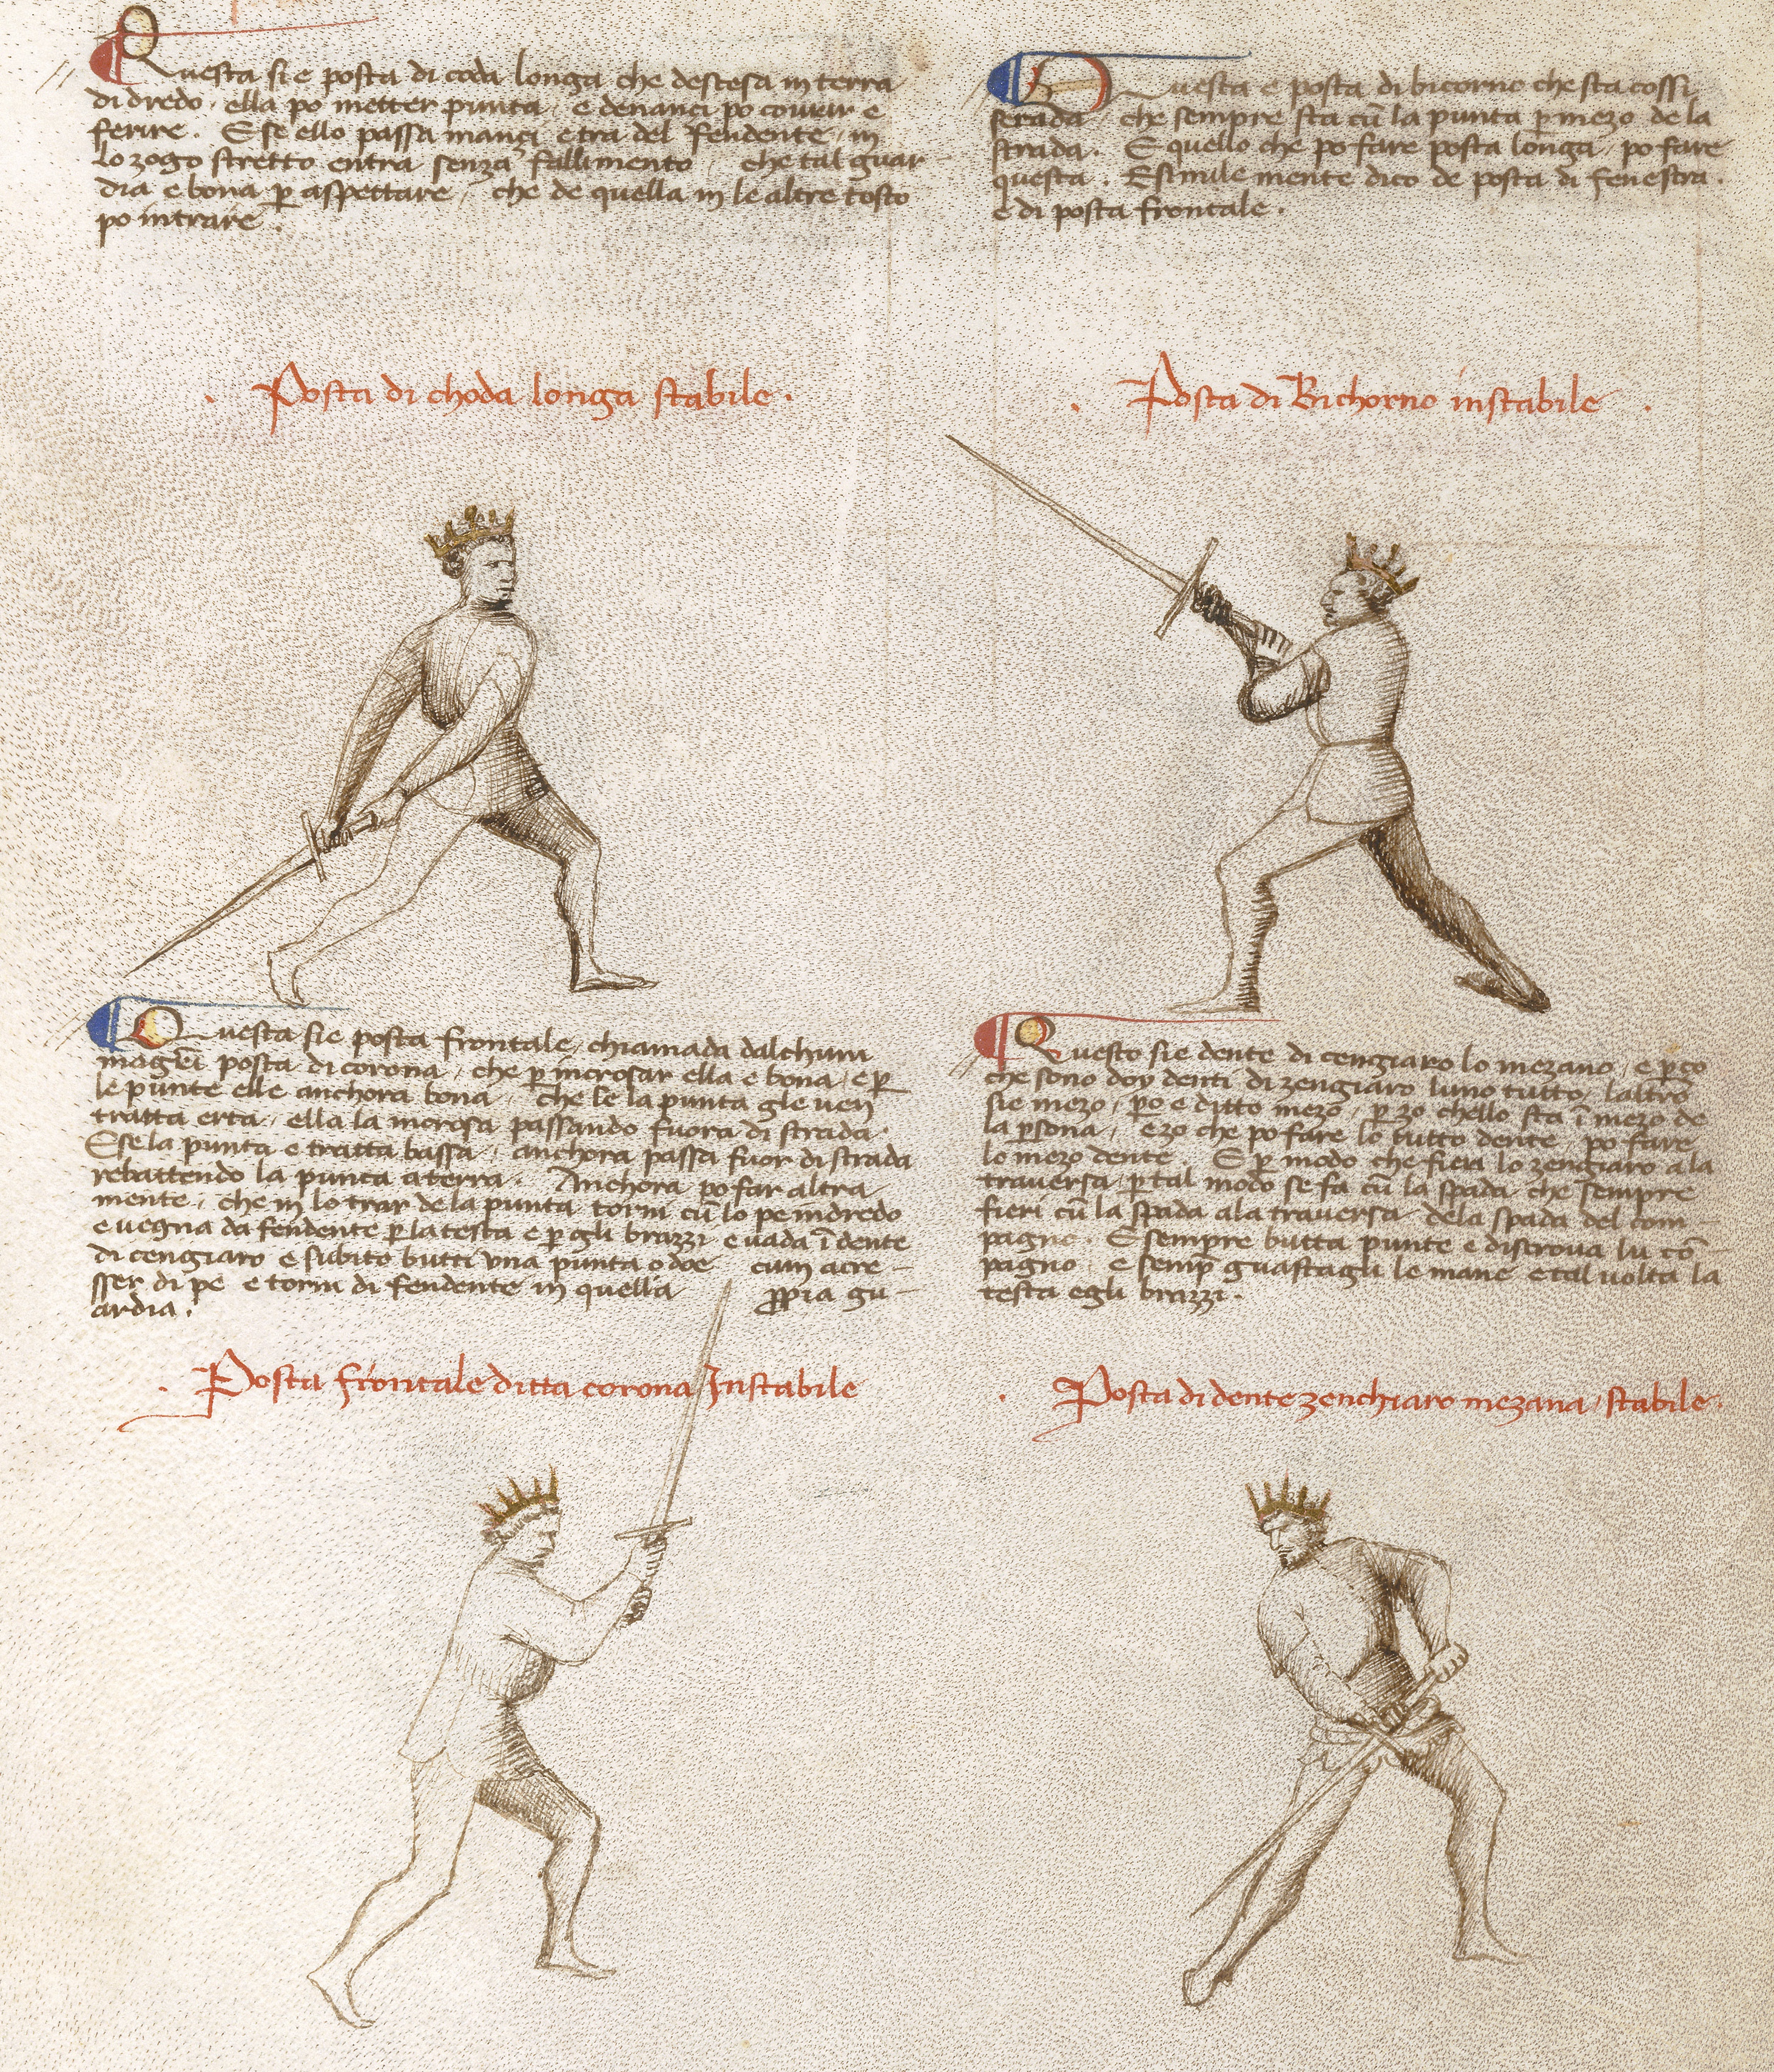 Questa sie posta di coda longa che destesa in terra
di dredo, ella po metter punta, e denanci po couvrir e
ferire. E se ello passa inançi e tra del fendente, in
lo zogo stretto entra senza fallimento, che tal guar-
dia e bona per aspettare, che de quella in le altre tosto
po intrare.
. Posta di choda longa stabile .
Questa e posta di bicorno che sta cossi
serada, che sempre sta cū la punta ꝑ mezo de la
strada. E quello che po fare posta longa, po fare
questa. E simile mente dico de posta di fenestra.
e di posta frontale.
. Posta di Bichorno instabile .
Questa sie posta frontale, chiamada dalchun
magrei posta di corona, che ꝑ incrosar ella e bona, e ꝑ
le punte elle anchora bona, che se la punta gle ven
tratta erta, ella la incrosa passando fuora di strada.
E se la punta e tratta bassa, anchora passa fuor di strada
rebattendo la punta a terra. Anchora po far altra
mente, che in lo trar de la punta torni cū lo pe indredo
e vegna da fendente ꝑ la testa e ꝑ gli brazzi e vada ī dente
di cengiaro e subito butti una punta o doe cum acre-
sser di pe e torni di fendente in quella ꝓpia gu-
ardia.
. Posta frontale ditta corona Instabile
Questo sie dente di cengiaro lo mezano, e ꝑ ço
che sono doy denti di zengiaro luno tutto, laltro
sie mezo, ꝑo e ditto mezo, ꝑ zo chello sta ī mezo de
la ꝑsona, e zo che po fare lo tutto dente, po fare
lo mezo dente. E ꝑ modo che fieri lo zengiaro a la
traversa, ꝑ tal modo se fa cū la spada che sempre
fieri cū la spada ala traversa dela spada del com-
pagno. E sempre butta punte e discrova lu cō-
pagno, e semꝑ guastagli le mane e tal volta la
testa egli brazzi.
. Posta di dente zenchiaro mezana, stabile .